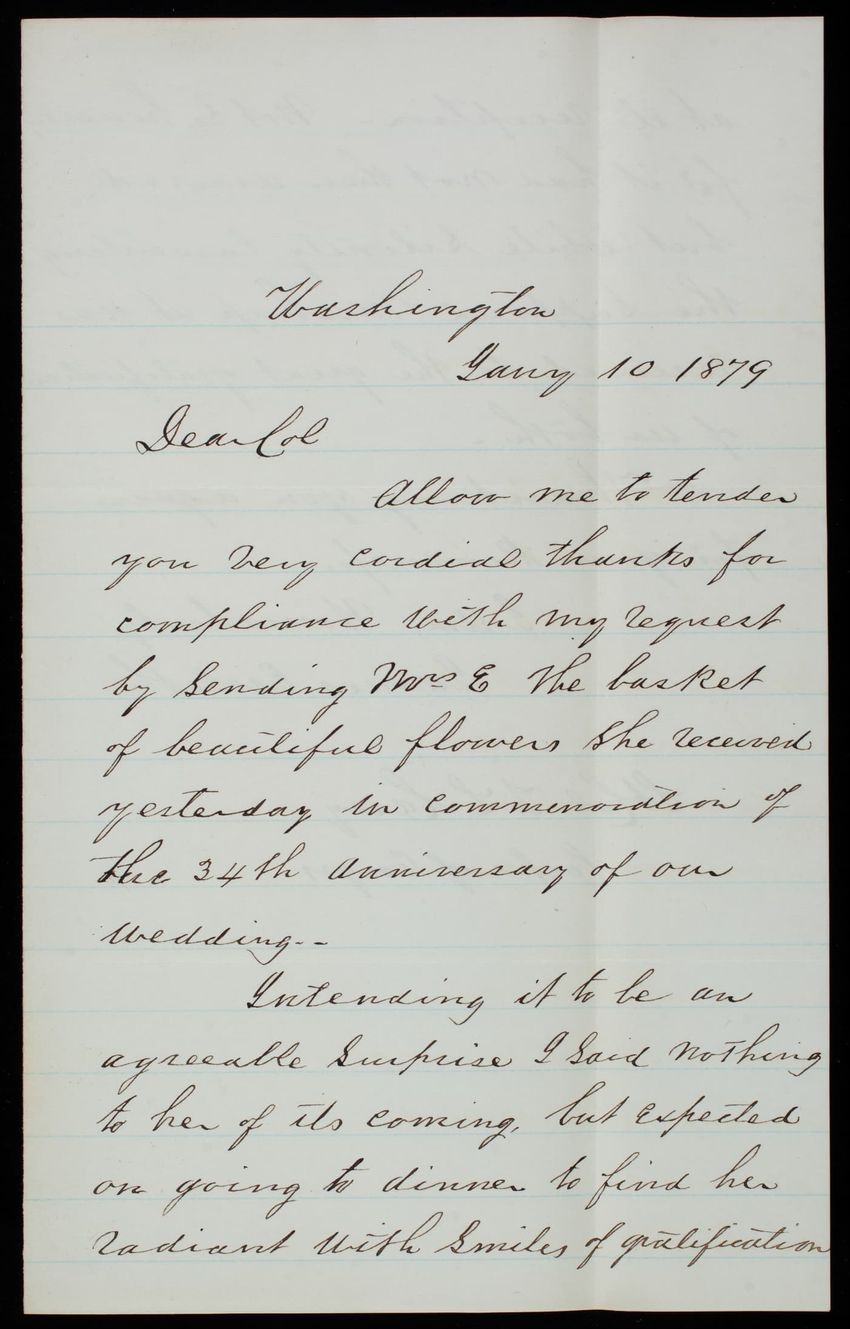 Washington
Jany 10 1879
Dear Col
Allow me to tender
you very cordial thanks for
compliance with my request
by sending Mrs E the basket
of beautiful flowers she received
yesterday in commemoration of
the 34th anniversary of our
wedding--
Intending it to be an
agreeable surprise I said nothing
to her of its coming, but expected
on going to dinner to find her
radiant with smiles of gratification